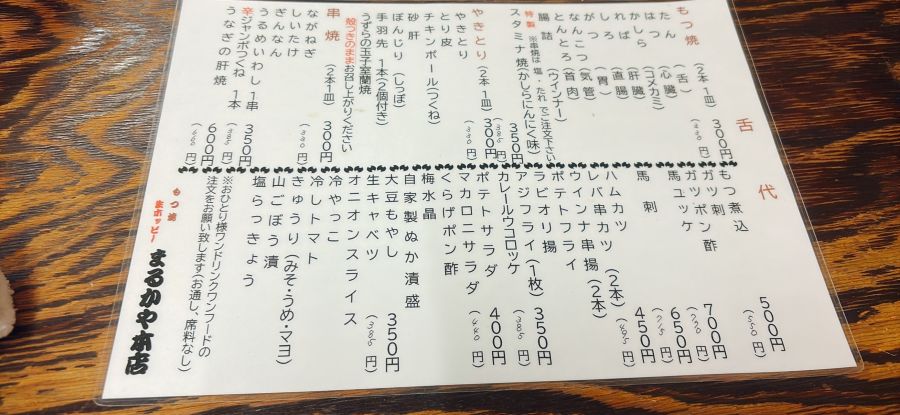 もつ焼 (2本1皿) 300円 (330円)
たん (舌)
はつ (心臓)
かしら (コメカミ)
ればー (肝臓)
しろ (直腸)
がつ (胃)
なんこつ (気管)
とんとろ (首肉)
腸詰 (ウインナー)
※串焼は塩・たれでご注文下さい
特製
スタミナ焼(かしらにんにく味) 350円 (385円)
やきとり (2本1皿) 300円 (330円)
やきとり
とり皮
チキンボール(つくね)
砂肝
ぼんじり (しっぽ)
手羽先 1本(2個付き)
うずらの玉子室蘭焼
殻つきのままお召し上がりください
串焼 (2本1皿) 300円 (330円)
ながねぎ
しいたけ
ぎんなん
うるめいわし 1串 350円 (385円)
辛ジャンボつくね 1本
うなぎの肝焼 600円 (660円)
舌代
もつ煮込 500円 (550円)
もつ刺
ガツポン酢 700円 (770円)
馬ユッケ 650円 (715円)
馬刺 450円 (495円)
ハムカツ (2本)
レバー串カツ (2本)
ウインナ串揚 (2本)
ポテトフライ
ラビオリ揚 350円 (385円)
アジフライ (1枚)
カレールウコロッケ
ポテトサラダ 400円 (440円)
マカロニサラダ
くらげポン酢
梅水晶
自家製ぬか漬盛
大豆もやし 350円 (385円)
生キャベツ
オニオンスライス
冷やっこ
冷しトマト
きゅうり (みそ・うめ・マヨ)
山ごぼう漬
塩らっきょう
※おひとり様ワンドリンクワンフードの
注文をお願い致します(お通し、席料なし)
もつ焼
生ホッピー
まるかや本店